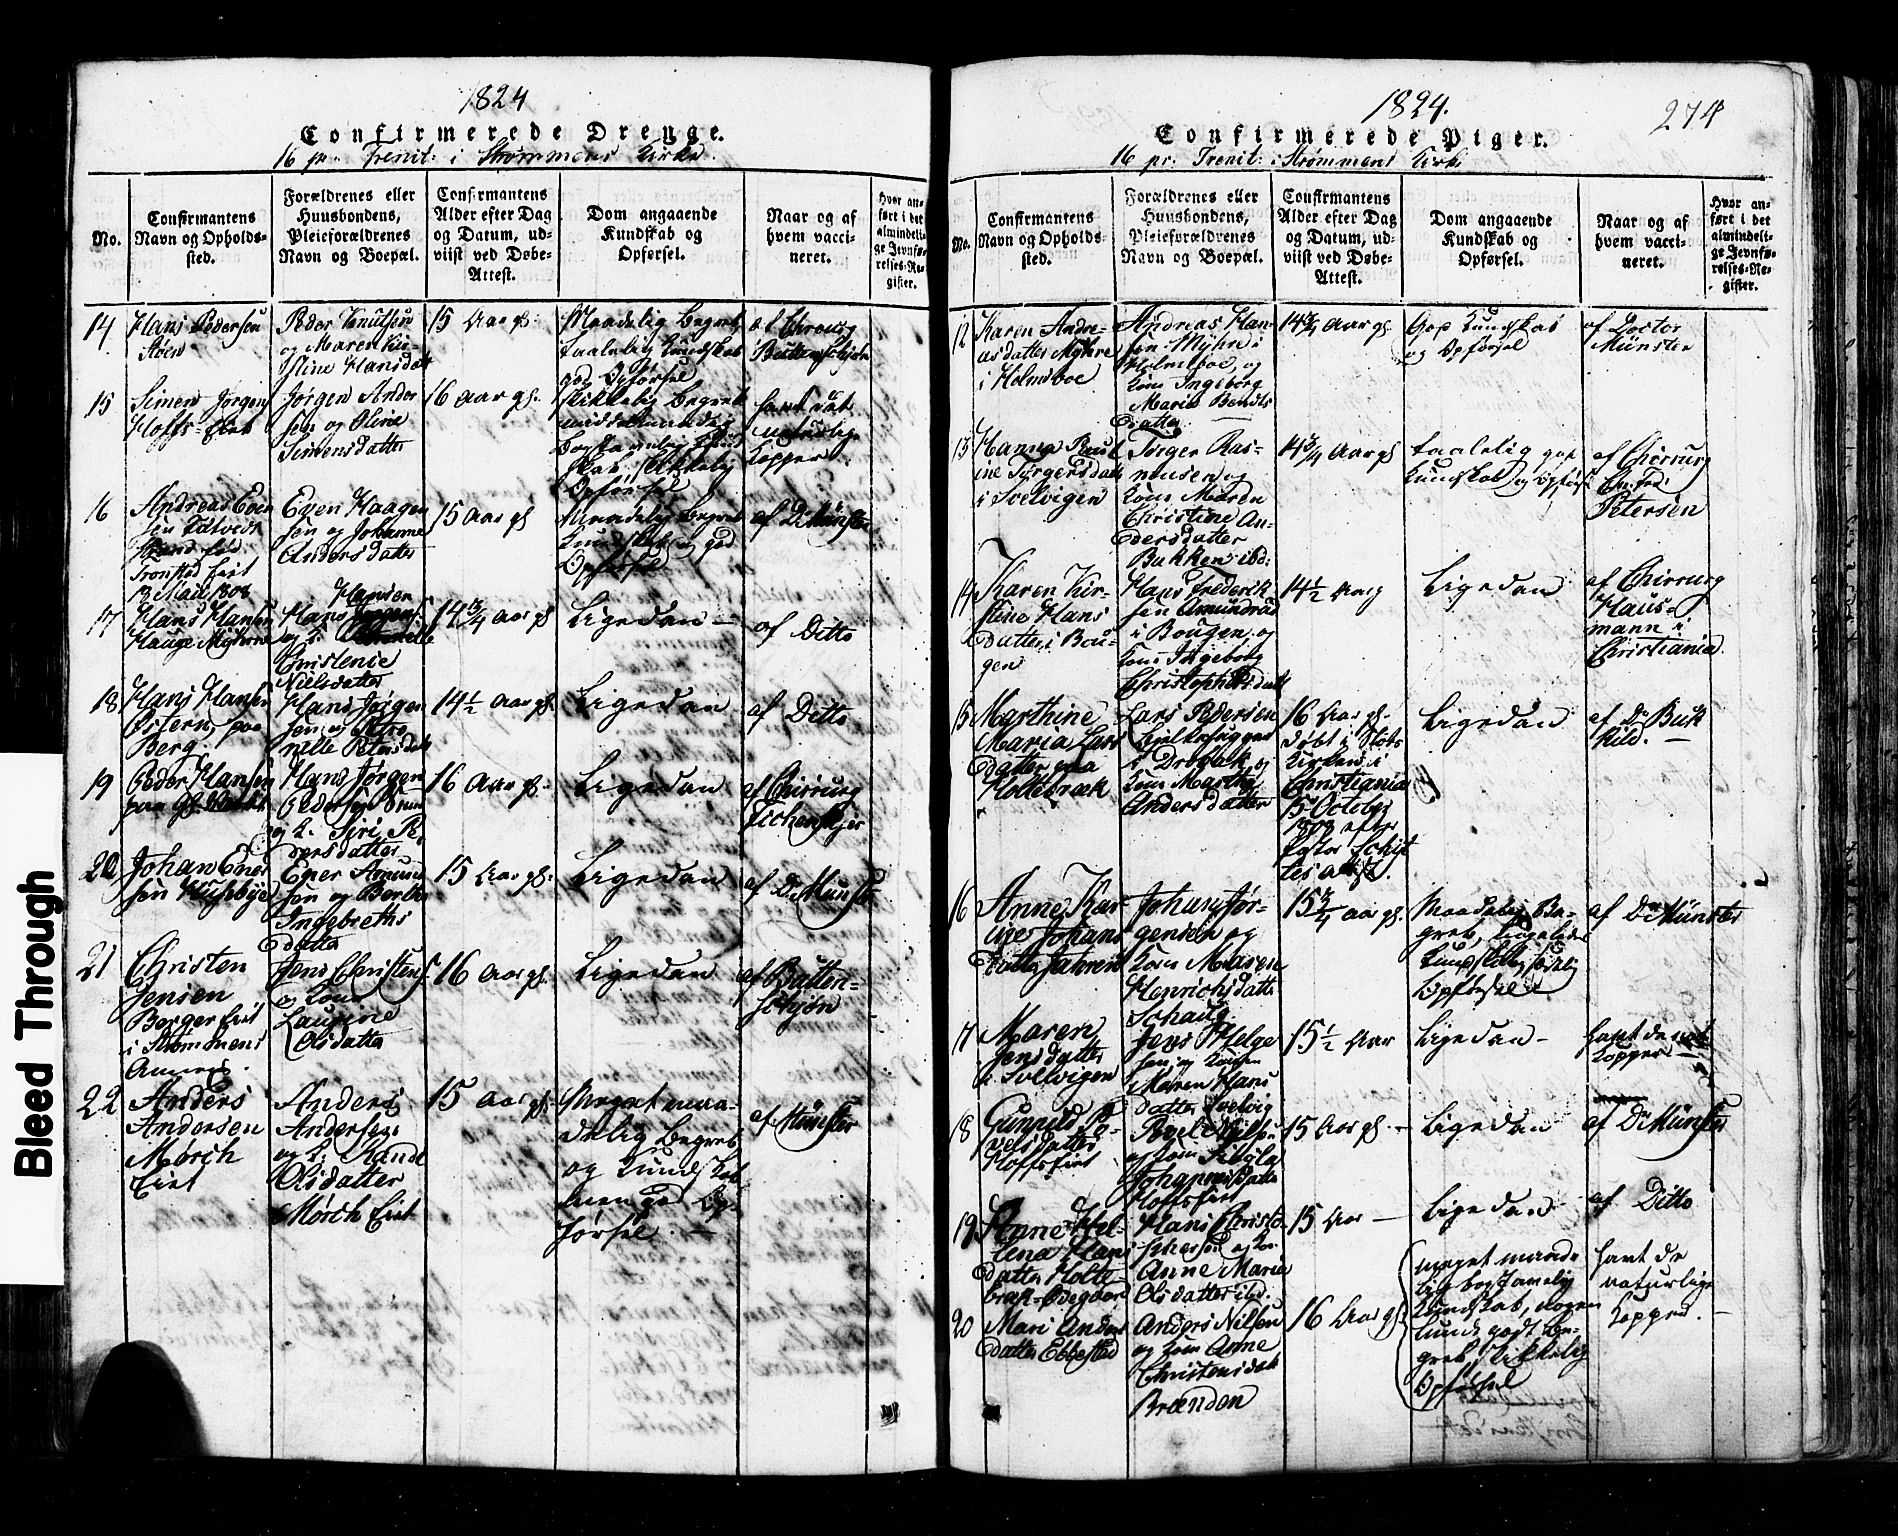 Bleed Through
1824
Confirmerede Drenge.
16 p. Trenit: i Strømmens Kirke.
No.
Confirmantens
Navn og Opholds-
sted.
Forældrenes eller
Huusbondens,
Pleieforældrenes
Navn og Boepæl.
Confirmantens
Alder efter Dag
og Datum, ud-
viist ved Døbe-
Attest.
Dom angaaende
Kundskab og
Opførsel.
Naar og af
hvem vacci-
neret.
Hvor an-
ført i det
almindeli-
ge Jevnfø-
relses-Re-
gister.
14
Hans Pedersen
Støen
Peder Knutsen
og Maren Kir-
stine Hansdatt
15 Aar gl:
Maadelig Begreb
taalelig Kundskab
god Opførsel
af Chirurg
15
Simen Jørgens
Hoffs-Eiet
Jørgen Ander
sen og Oline
Simensdatter
16 Aar gl.
skikkelig Begreb
Opførsel
havt de
naturlige
Kopper.
16
Andreas Even
sen
født
Tronstad Eiet
13 Mai 1808
Even Haagen
sen og Johanne
Andersdatter
15 Aar gl
Maadelig Begreb
Kundskab og god
Opførsel
af Dr Münster
17
Hans Hansen
Hauge Myhrene
Hansen
Hans Jørgens
og k.
Christenie
Nielsdatter
14 3/4 Aar gl
Ligedan —
af Ditto
18
Hans Hansen
Østern, paa
Berg.
Hans Jørgen
sen og Petro
nille Petersdatt
14 1/2 Aar gl.
Ligedan
af Ditto
19
Peder Hansen
paa Gl.
Hans Jørgen
Pedersen
og k. Siri Pe
dersdatter
16 Aar gl.
Ligedan
af Chirurg
20
Johan Ener
sen
Ener Amund
sen og Berthe
Ingebreths
datter
15 Aar gl.
Ligedan
af Dr Münst
21
Christen
Jensen
Berger Eiet
i Strømmens
Annex.
Jens Christens.
og Kone
Laurine
Olsdatter
16 Aar gl.
Ligedan
af Butten-
schjøn
22
Anders
Andersen
Mørch
Eiet
Anders
Andersen
og k: Randi
Olsdatter
Mørch Eiet
15 Aar gl.
Meget maa-
delig Begreb
og Kundskab
men god Op-
førsel. —
af Münster
1824.
274
Confirmerede Piger.
16 pr: Trenit: i Strømmens Kirke
No.
Confirmantens
Navn og Opholds-
sted.
Forældrenes eller
Huusbondens,
Pleieforældrenes
Navn og Boepæl.
Confirmantens
Alder efter Dag
og Datum, ud-
viist ved Døbe-
Attest.
Dom angaaende
Kundskab og
Opførsel.
Naar og af
hvem vacci-
neret.
Hvor an-
ført i det
almindeli-
ge Jevnfø-
relses-Re-
gister.
12
Karen Andre-
asdatter Myhre
i Holmsboe
Andreas Han-
sen Myhre i
Holmsboe, og
Kone Ingeborg
Maria Bendts
Datter
14 3/4 Aar gl
God Kundskab
og Opførsel
af Doctor
Münster
13
Hanna Paul
ine Tørgersdatt
i Svelvigen
Tørger Ras-
mussen og
Kone Maren
Christine An-
dersdatter
Bakken ibd:
14 3/4 Aar gl
taalelig god
Kundskab og Opførs
af Chirurg
Petersen
14
Karen Kir-
stine Hans
datter i Bou-
gen
Hans Frederik
sen Amundrud
i Bougen, og
Kone Ingeborg
Christophersdatt
14 1/2 Aarg
Ligedan
af Chirurg
Haus-
mann i
Christiania
15
Marthine
Maria Lars
datter paa
Holtebræk
Lars Pedersen
i Drøbak, og
Kone Marthe
Andersdatter
16 Aar gl.
døbt i Slots
Kirken i
Christiania
15 October
1808 efter
Pastor
Attest.
Ligedan
af Dr Buk
hild. —
16
Anne Kar
ine Johans
datter Jahren
Johan Jør-
gensen og
Kone Maren
Henrichsdatte
Schaug
15 3/4 Aar gl
Maadelig Be-
greb,
Opførsel
af Dr Münster
17
Maren
Jensdatter
i Svelvigen
Jens Helge
sen og Konen
Maren Hans
datter Svelvig
15 1/2 Aar
Ligedan —
havt de nat
Kopper —
18
Gunild Po-
velsdatter
Hoffseiet
Povel Nilsen
og Kone
Johannesdatte
Hoffseiet
15 Aar gl. —
Ligedan
af Dr Münster
19
Anne Hel-
lena Hans
datter Holte
bræk-Ødegaard
Hans Christo
phersen og Ko:
Anne Maria
Olsdatter ibd.
15 Aar —
Ligedan
af Ditto
20
Mari Anders
datter Ebbestad
Anders Nilsen
og Kone Anne
Christensdat
Brænden
16 Aar gl.
meget maade
lig bogstavelig
Kundskab, nogen
lunde godt Be-
greb, skikkelig
Opførsel
havt de
naturlige
Kopper.